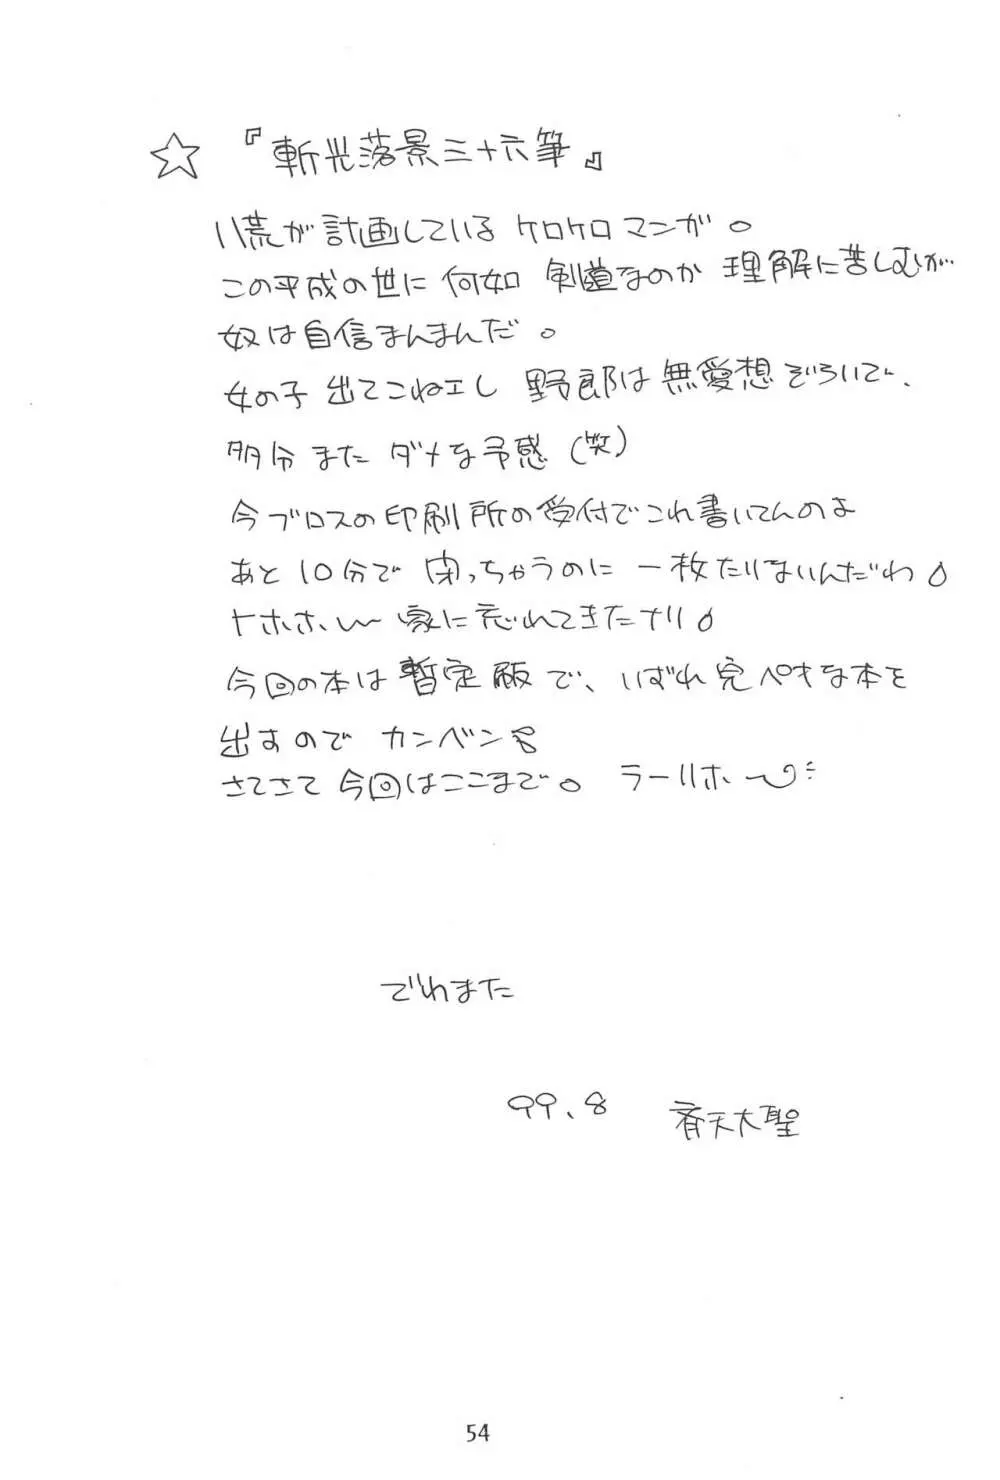 ☆『斬光落景三十六筆』
八荒が計画しているケロケロマンガ。
この平成の世に何如剣道なのか理解に苦しむが…
奴は自信まんまんだ。
女の子出てこねェし野郎は無愛想ぞろいで、
多分またダメな予感(笑)
今ブロスの印刷所の受付でこれ書いてんのよ
あと10分で閉っちゃうのに一枚たりないんだわ
トホホ、〜家に忘れてきたナリ
今回の本は暫定版で、いずれ完ペキな本を
出すのでカンベン
さてさて今回はここまで。ラーリホー
でわまた
99.8 斉天大聖
54